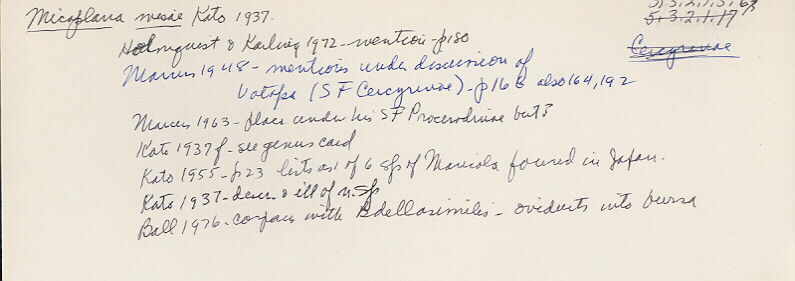 Micoplana misae Kato 1937.
5.3.2.1.5.63
5.3.2.1.17
Cercyrinae
Holmquist & Karling 1972 - mention - p180
Marcus 1948 - mentions under discussion of
Votapa (SF Cercyrinae) - p168 also 164, 192
Marcus 1963 - place under his SF Procerodinae but?
Kato 1937f - see genus card
Kato 1955 - p23 lists as 1 of 6 sp of Maricola found in Japan.
Kato 1937 - descr. & ill of n.sp
Ball 1976 - compares with Bdellasimilis - oviducts into bursa